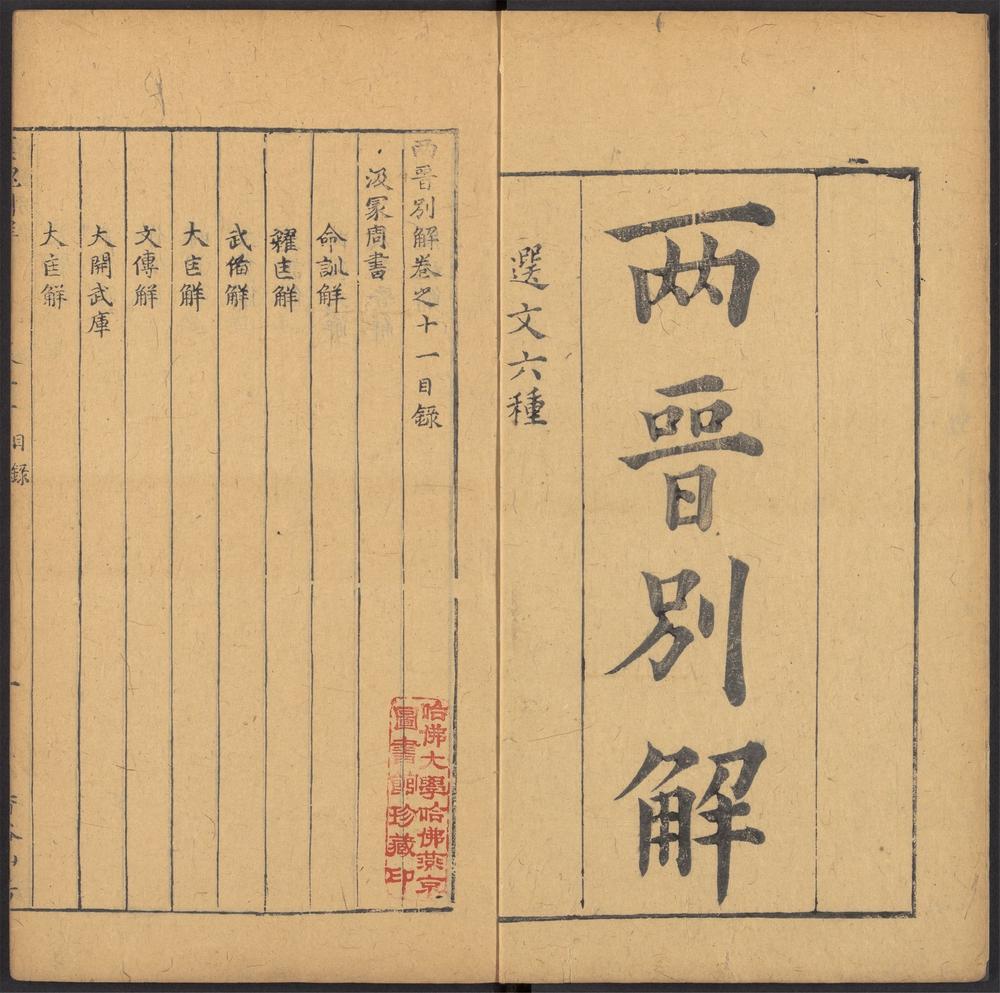 兩晉別解
選文六種
兩晉別解卷之十一目錄
汲冢周書
命訓解
糴匡解
武備解
大匡解
文傳解
大開武庫
大匡解
目錄
哈佛大學哈佛燕京
圖書館珍藏印